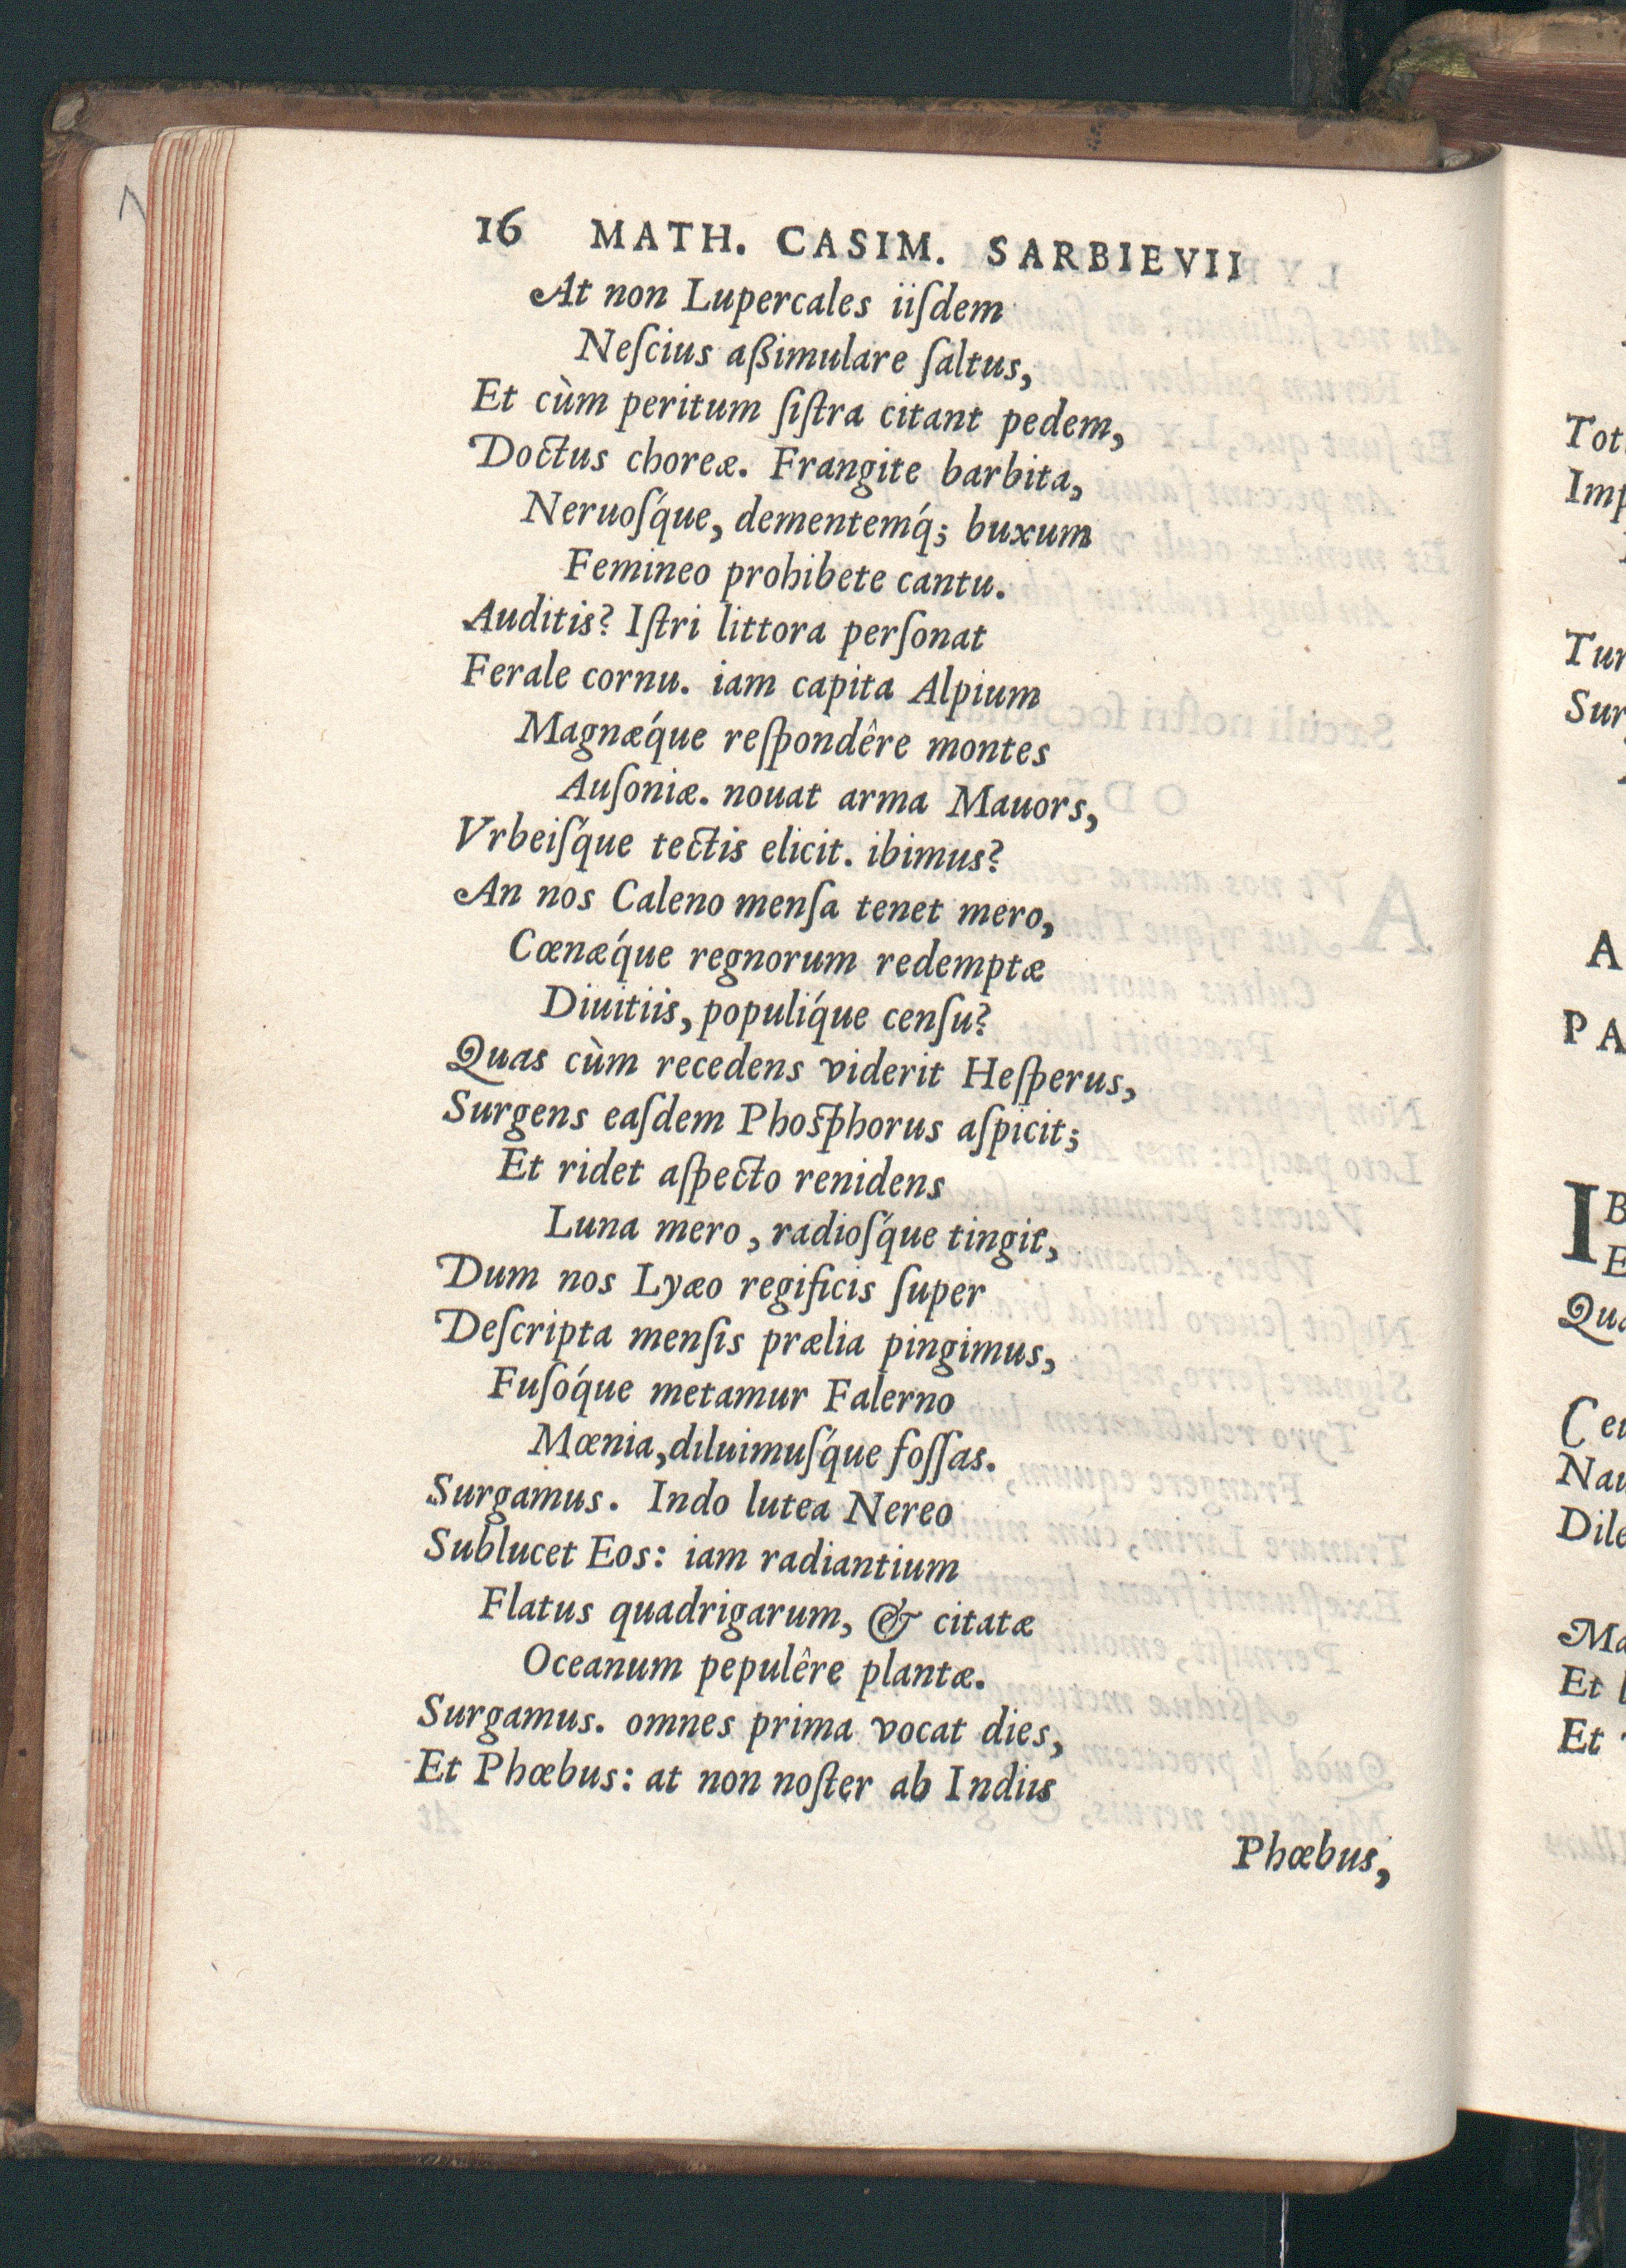 16 MATH. CASIM. SARBIEVII
At non Lupercales iiſdem
Neſcius aßimulare ſaltus,
Et cùm peritum ſiſtra citant pedem,
Doctus choreæ. Frangite barbita,
Neruoſq́ue, dementemq́; buxum
Femineo prohibete cantu.
Auditis? Iſtri littora perſonat
Ferale cornu. iam capita Alpium
Magnæq́ue reſpondêre montes
Auſoniæ. nouat arma Mauors,
Vrbeiſq́ue tectis elicit. ibimus?
An nos Caleno menſa tenet mero,
Cœnæq́ue regnorum redemptæ
Diuitiis, populiq́ue cenſu?
Quas cùm recedens viderit Heſperus,
Surgens eaſdem Phoſphorus aſpicit;
Et ridet aſpecto renidens
Luna mero, radioſq́ue tingit,
Dum nos Lyæo regificis ſuper
Deſcripta menſis prælia pingimus,
Fuſoq́ue metamur Falerno
Mœnia, diluimuſq́ue foſſas.
Surgamus. Indo lutea Nereo
Sublucet Eos: iam radiantium
Flatus quadrigarum, & citatæ
Oceanum pepulêre plantæ.
Surgamus. omnes prima vocat dies,
Et Phœbus: at non noſter ab Indiis
Phœbus,
Tot
Imp
Tur
Sur
A
PA
IB
E
Qua
Ceu
Nau
Dile
Ma
Et l
Et